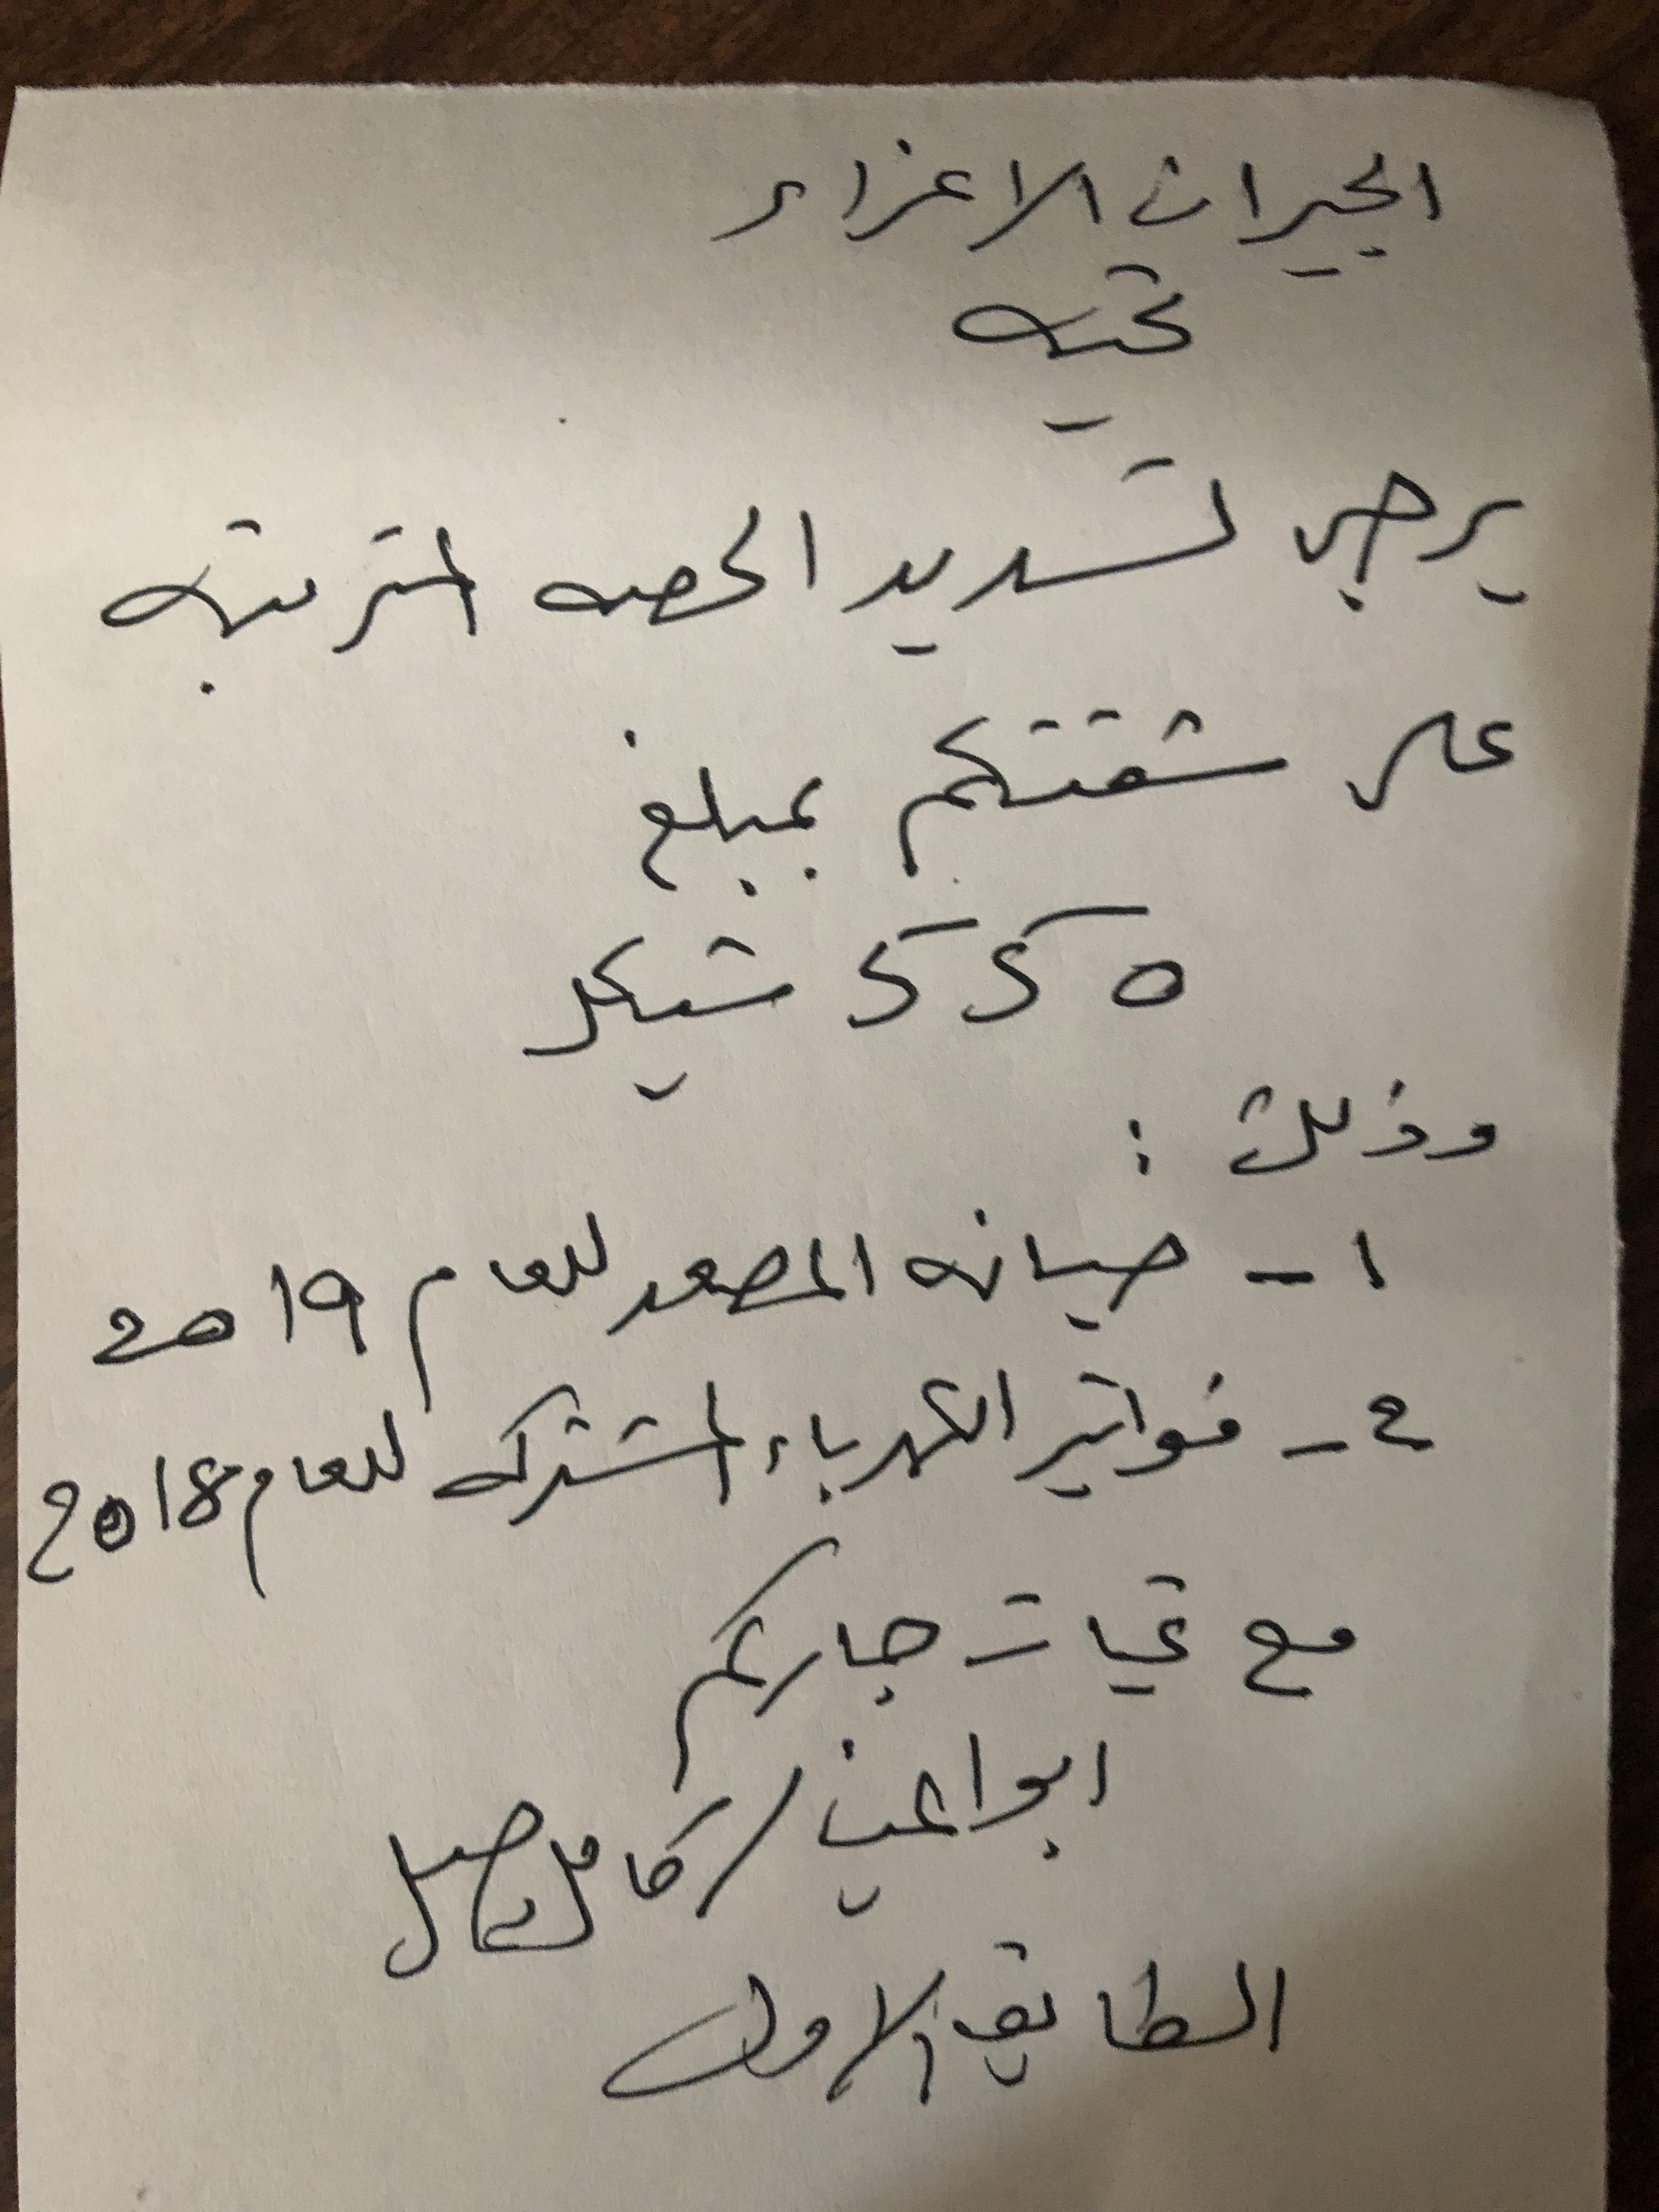 الجيران الاعزاء
تحيه
يرجى تسديد الحصه المترتبه
على شقتكم بمبلغ
550 شيكل
وذلك :
1 - صيانه المصعد للعام 2019
2 - فواتير الكهرباء المشتركه للعام 2018
مع تحيات جاركم
ابو امين / كامل
الطابق الاول